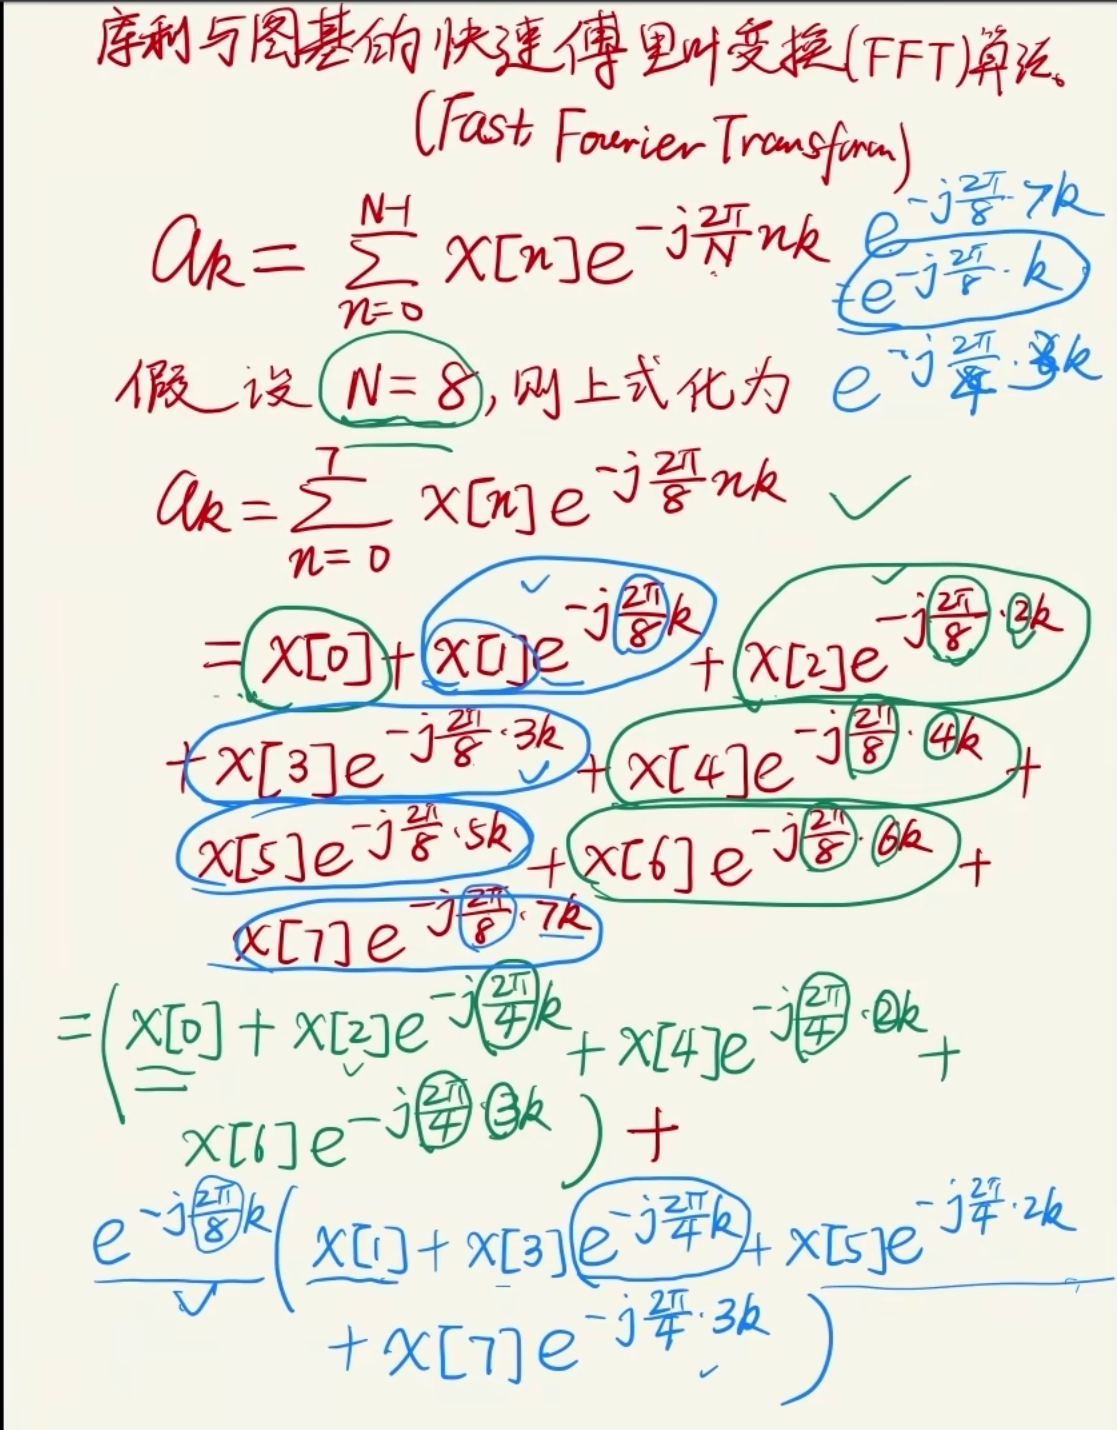 库利与图基的快速傅里叶变换(FFT)算法。
(Fast Fourier Transform)
a_k = \sum_{n=0}^{N-1} x[n]e^{-j\frac{2π}{N}nk}
e^{-j\frac{2π}{8}·7k}
=e^{-j\frac{2π}{8}·k}
e^{-j\frac{2π}{4}·3k}
假设N=8,则上式化为
a_k = \sum_{n=0}^{7} x[n]e^{-j\frac{2π}{8}nk} ✓
= x[0] + x[1]e^{-j\frac{2π}{8}k} + x[2]e^{-j\frac{2π}{8}·2k}
+ x[3]e^{-j\frac{2π}{8}·3k} + x[4]e^{-j\frac{2π}{8}·4k} +
x[5]e^{-j\frac{2π}{8}·5k} + x[6]e^{-j\frac{2π}{8}·6k} +
x[7]e^{-j\frac{2π}{8}·7k}
= (x[0] + x[2]e^{-j\frac{2π}{4}k} + x[4]e^{-j\frac{2π}{4}·2k} +
x[6]e^{-j\frac{2π}{4}·3k}) +
e^{-j\frac{2π}{8}k}(x[1] + x[3]e^{-j\frac{2π}{4}k} + x[5]e^{-j\frac{2π}{4}·2k}
+ x[7]e^{-j\frac{2π}{4}·3k})